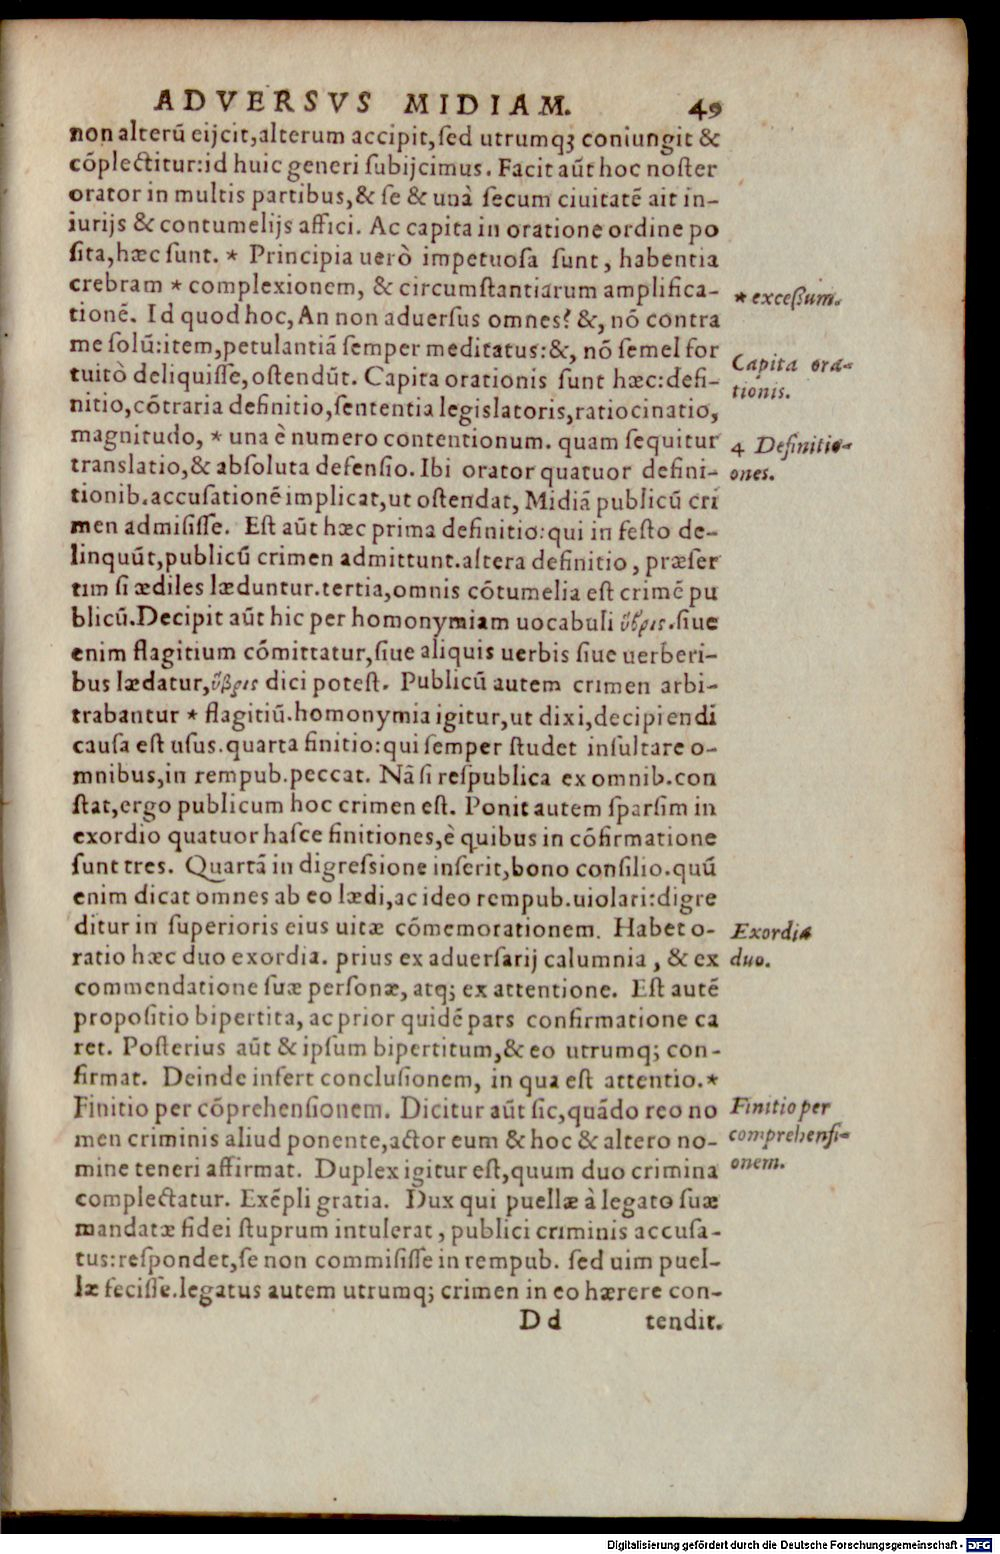 ADVERSVS MIDIAM. 49
non alterū eijcit,alterum accipit,sed utrumqꝫ coniungit &
cōplectitur:id huic generi subijcimus. Facit aūt hoc noster
orator in multis partibus,& se & unà secum ciuitatē ait in-
iurijs & contumelijs affici. Ac capita in oratione ordine po
sita,hæc sunt. * Principia uerò impetuosa sunt, habentia
crebram * complexionem, & circumstantiarum amplifica-
tionē. Id quod hoc, An non aduersus omnes? &, nō contra
me solū:item,petulantiā semper meditatus:&, nō semel for
tuitò deliquisse,ostendūt. Capita orationis sunt hæc:defi-
nitio,cōtraria definitio,sententia legislatoris,ratiocinatio,
magnitudo, * una è numero contentionum. quam sequitur
translatio,& absoluta defensio. Ibi orator quatuor defini-
tionib.accusationē implicat,ut ostendat, Midiā publicū cri
men admisisse. Est aūt hæc prima definitio:qui in festo de-
linquūt,publicū crimen admittunt.altera definitio, præser
tim si ædiles læduntur.tertia,omnis cōtumelia est crimē pu
blicū.Decipit aūt hic per homonymiam uocabuli ὕβρις.siue
enim flagitium cōmittatur,siue aliquis uerbis siue uerberi-
bus lædatur,ὕβρις dici potest. Publicū autem crimen arbi-
trabantur * flagitiū.homonymia igitur,ut dixi,decipiendi
causa est usus.quarta finitio:qui semper studet insultare o-
mnibus,in rempub.peccat. Nā si respublica ex omnib.con
stat,ergo publicum hoc crimen est. Ponit autem sparsim in
exordio quatuor hasce finitiones,è quibus in cōfirmatione
sunt tres. Quartā in digressione inserit,bono consilio.quū
enim dicat omnes ab eo lædi,ac ideo rempub.uiolari:digre
ditur in superioris eius uitæ cōmemorationem. Habet o-
ratio hæc duo exordia. prius ex aduersarij calumnia, & ex
commendatione suæ personæ, atqꝫ ex attentione. Est autē
propositio bipertita, ac prior quidē pars confirmatione ca
ret. Posterius aūt & ipsum bipertitum,& eo utrumqꝫ con-
firmat. Deinde infert conclusionem, in qua est attentio.*
Finitio per cōprehensionem. Dicitur aūt sic,quādo reo no
men criminis aliud ponente,actor eum & hoc & altero no-
mine teneri affirmat. Duplex igitur est,quum duo crimina
complectatur. Exēpli gratia. Dux qui puellæ à legato suæ
mandatæ fidei stuprum intulerat, publici criminis accusa-
tus:respondet,se non commisisse in rempub. sed uim puel-
læ fecisse.legatus autem utrumqꝫ crimen in eo hærere con-
Dd tendit.
* excessum.
Capita ora-
tionis.
4 Definitio-
ones.
Exordia
duo.
Finitio per
comprehensi-
onem.
Digitalisierung gefördert durch die Deutsche Forschungsgemeinschaft - DFG